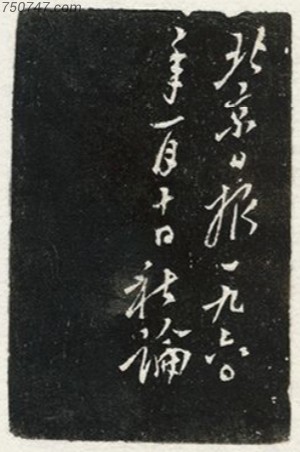 750747.com
北京日报一九六〇
年一月十日社論